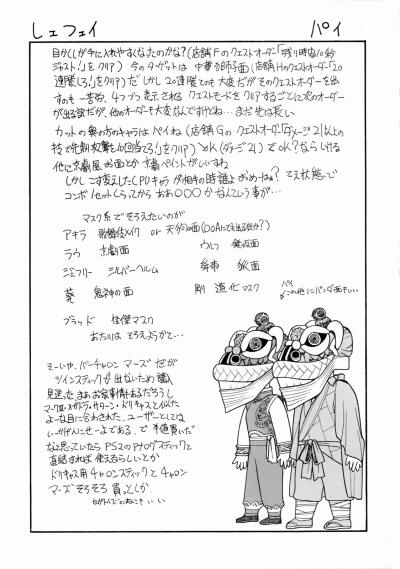 しェフェイ　パイ
自分くじが手に入れやすくなたのかな?(店舗Fのクエストオーダー「残り時間10秒
ジャスト!」をクリア) 今のターゲットは 中華の師子面(店舗Hのクエストオーダー「20
連勝しろ!」をクリア)だ しかし20連勝でも大変だがそのクエストオーダーを出
すのも一苦労、4つづつ表示されるクエストモードをクリアするごとに次のオーダー
が出る訳だが、他のオーダーも大変なんですけどね…まだ先は長い
カットの奥の方のキャラはペイね(店舗Gのクエストオーダー「ダメージ21以上の
技で
他に京劇風お面とか京劇ペイントがいいすね
しかしこす変えしたCPUキャラが相手の時誰よおめーはぁ?てえ状態で
コンボ1セットくらってからああ〇〇〇かなんていう事が…
マスク系でそろえたいのが
アキラ　歌舞伎メイク or 天狗の面
ラウ　京劇面　ウルフ　鉄仮面
ジェフリー　シルバーヘルム　舜帝　猿面
葵　鬼神の面　剛　道化マスク
ブラッド　怪傑マスク
あたりは そろえようかと…
そーいや、バーチャロン マーズ だが
ツインスティックが出ないため 購入
見送った まぁお家事情もあるだろうし
マークIII・メガドラ・サターン・ドリキャスと似た
よーな目に合わされた、ユーザーとしては
いーかげんにせーよである、で 半値買いだ
なと思っていたら PS2のアナログスティックと
直結すれば 使えるらしいとか
ドリキャス用 チャロンスティックと チャロン
マーズ そろそろ 買っとくか